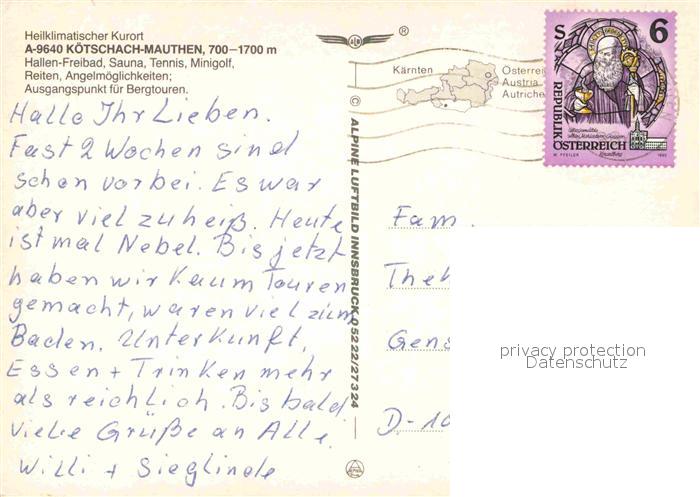 Heilklimatischer Kurort
A-9640 KÖTSCHACH-MAUTHEN, 700–1700 m
Hallen-Freibad, Sauna, Tennis, Minigolf,
Reiten, Angelmöglichkeiten;
Ausgangspunkt für Bergtouren.
Hallo Ihr Lieben.
Fast 2 Wochen sind
schon vorbei. Es war
aber viel zu heiß. Heute
ist mal Nebel. Bis jetzt
haben wir kaum Touren
gemacht, waren viel zum
Baden. Unterkunft,
Essen + Trinken mehr
als reichlich. Bis bald
viele Grüße an Alle.
Willi + Sieglinde
© ALPINE LUFTBILD INNSBRUCK 05222/27324
®
Kärnten
Österreich
Austria
Autriche
S 6
REPUBLIK
ÖSTERREICH
W. PFEILER
Fam.
Thek
Gens
D-10
privacy protection
Datenschutz